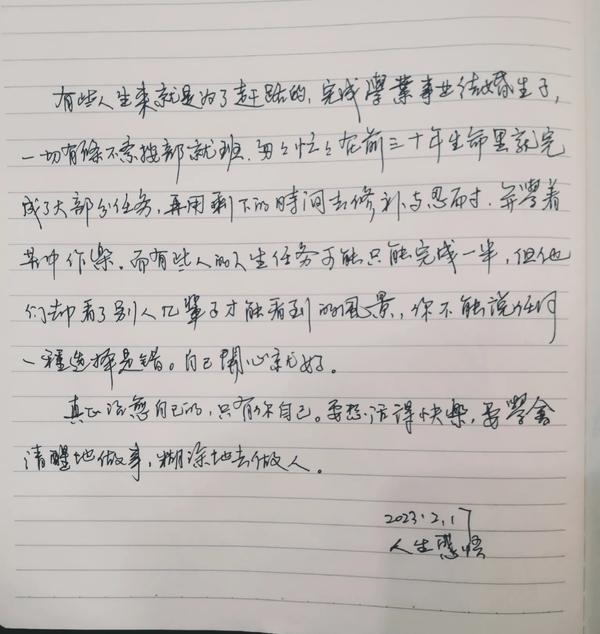 有些人生来就是为了赶路的，完成學業事业结婚生子，
一切有條不紊按部就班，匆匆忙忙在前三十年生命里就完
成了大部分任务，再用剩下的時间去修补与思而寸，并學着
苦中作樂。而有些人的人生任务可能只能完成一半，但他
们却看了别人几辈子才能看到的風景，你不能说任何
一種选择是错。自己開心就好。
真正治愈自己的，只有你自己。要想活得快樂，要學會
清醒地做事，糊涂地去做人。
2023.2.17
人生感悟